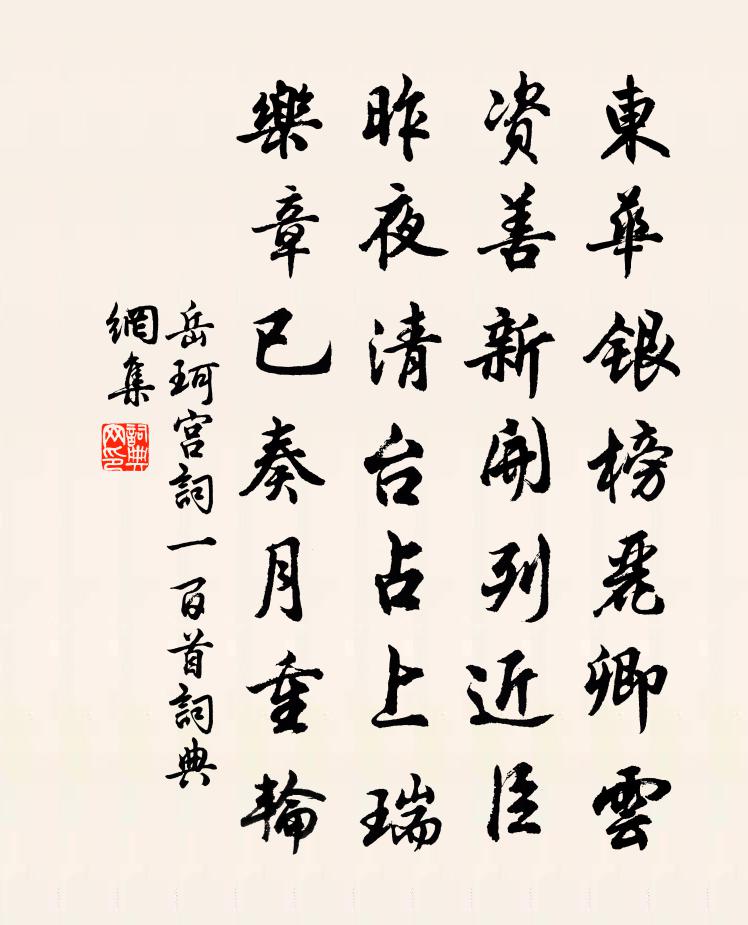 東華銀榜麗卿雲
資善新開列近臣
昨夜清台占上瑞
樂章已奏月重輪
岳珂宮詞一百首詞典
網集
詞典
网印